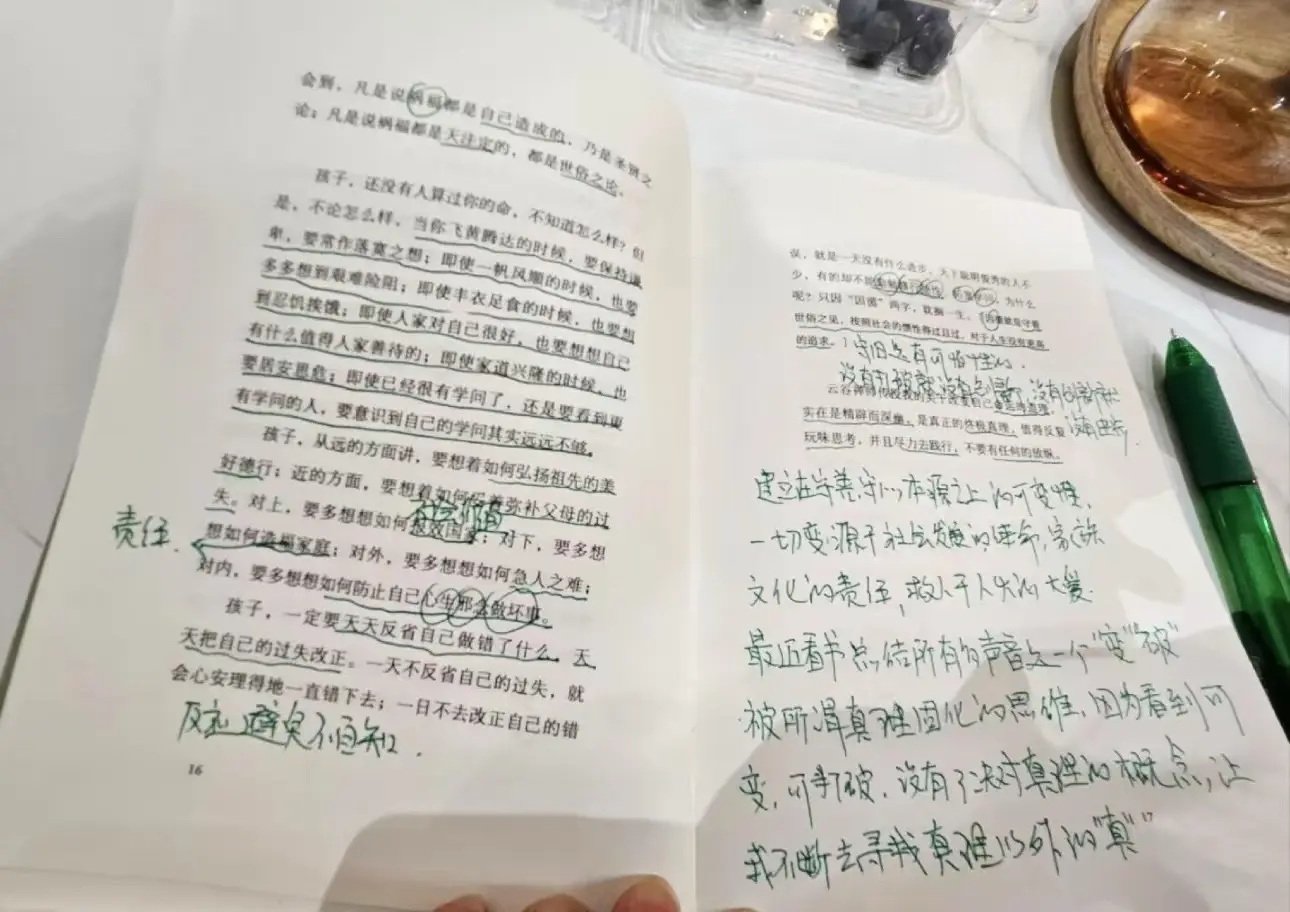 会到，凡是说祸福都是自己造成的，乃是圣贤之
论；凡是说祸福都是天注定的，都是世俗之论。
孩子，还没有人算过你的命，不知道怎么样？但
是，不论怎么样，当你飞黄腾达的时候，要保持谦
卑，要常作落寞之想；即使一帆风顺的时候，也要
多多想到艰难险阻；即使丰衣足食的时候，也要想
到忍饥挨饿；即使人家对自己很好，也要想想自己
有什么值得人家善待的；即使家道兴隆的时候，也
要居安思危；即使已经很有学问了，还是要看到更
有学问的人，要意识到自己的学问其实远远不够。
孩子，从远的方面讲，要想着如何弘扬祖先的美
好德行；近的方面，要想着如何弥补父母的过
社会价值
失。对上，要多想想如何报效国家；对下，要多想
责任.
想如何造福家庭；对外，要多想想如何急人之难；
对内，要多想想如何防止自己心生邪念做坏事。
孩子，一定要天天反省自己做错了什么，天
天把自己的过失改正。一天不反省自己的过失，就
会心安理得地一直错下去；一日不去改正自己的错
不自知.
16
误，就是一天没有什么进步，天下聪明俊秀的人不
少，有的却不能 为什么
呢？只因“因循”两字，耽搁一生。因循就是守着
世俗之见，按照社会的惯性得过且过，对于人生没有更高
的追求。
守旧是有可怕性的,
没有打破就没有创新, 没有创新就
没有进步.
云谷禅师传授我的关于改变自己命运的真理，
实在是精辟而深奥，是真正的终极真理，值得反复
玩味思考，并且尽力去践行，不要有任何的放纵。
建立在守善,守心本源之上的可变性,
一切变源于社会发展的使命,家族
文化的责任,
最近看书总结所有的声音文一个“变”“破”
被所谓真理固化的思维,因为看到可
变,可打破,没有了决对真理的概念,让
我不断去寻找真理以外的“真”